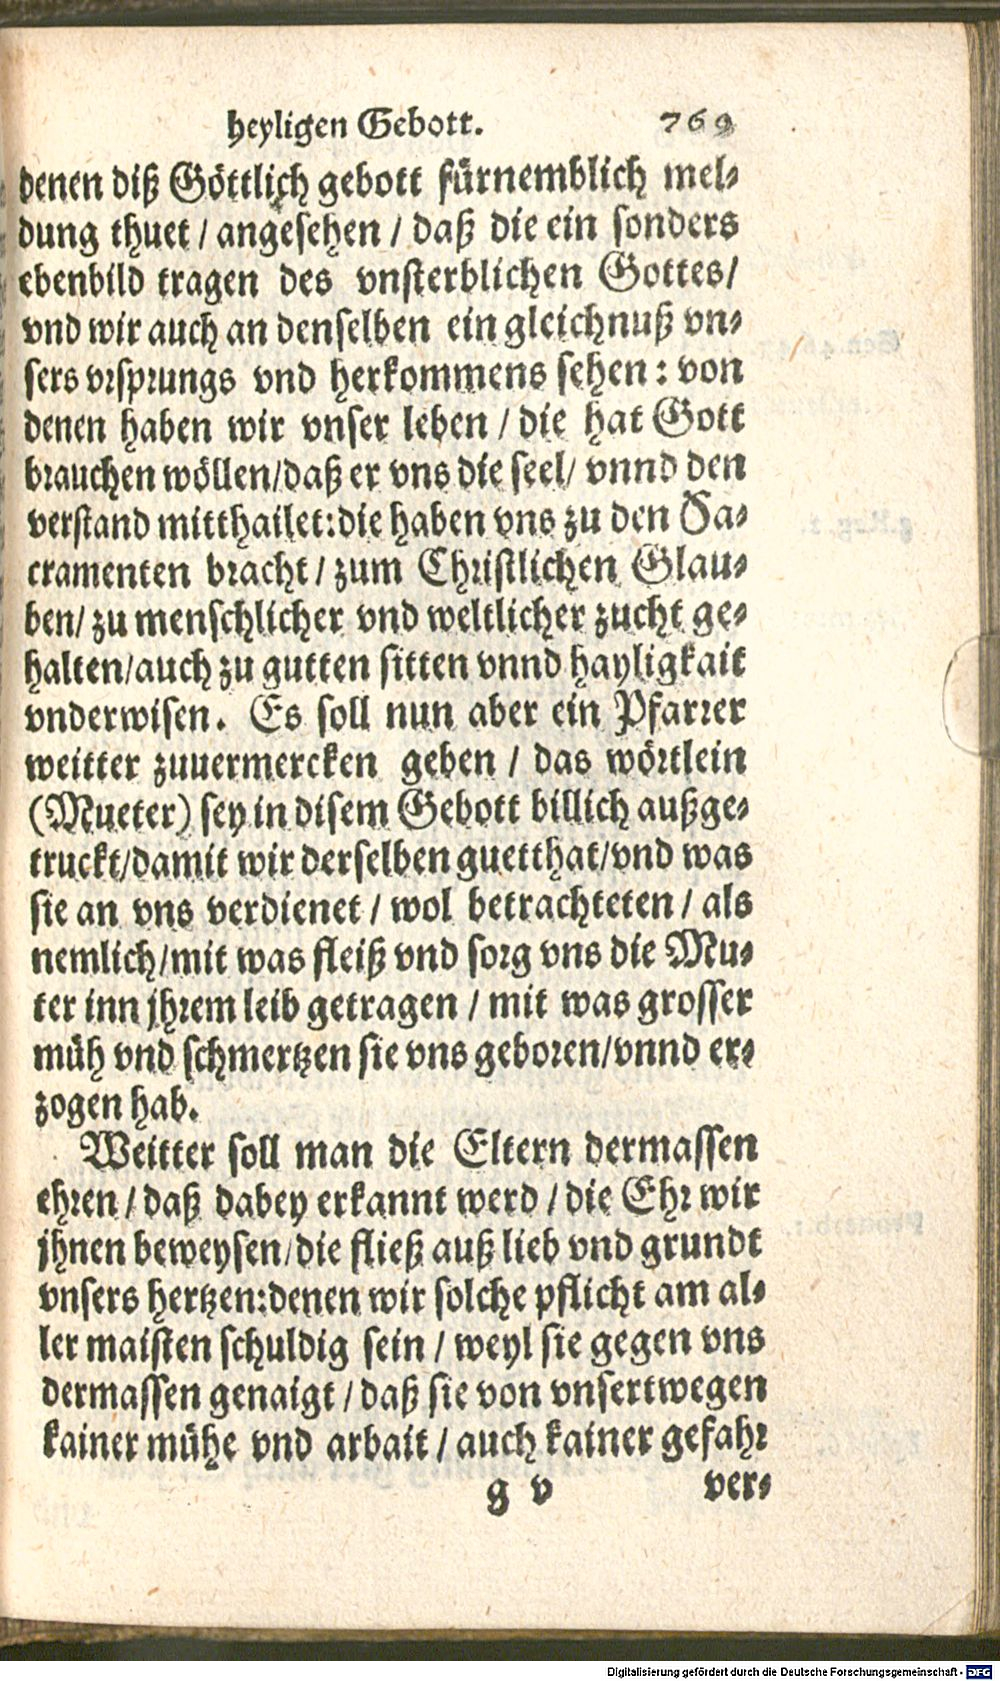 heyligen Gebott. 769
denen diß Göttlich gebott fürnemblich mel-
dung thuet / angesehen / daß die ein sonders
ebenbild tragen des vnsterblichen Gottes /
vnd wir auch an denselben ein gleichnuß vn-
sers vrsprungs vnd herkommens sehen: von
denen haben wir vnser leben / die hat Gott
brauchen wöllen / daß er vns die seel / vnnd den
verstand mitthailet: die haben vns zu den Sa-
cramenten bracht / zum Christlichen Glau-
ben / zu menschlicher vnd weltlicher zucht ge-
halten / auch zu gutten sitten vnnd hayligkait
vnderwisen. Es soll nun aber ein Pfarrer
weitter zuuermercken geben / das wörtlein
(Mueter) sey in disem Gebott billich außge-
truckt / damit wir derselben guetthat / vnd was
sie an vns verdienet / wol betrachteten / als
nemlich / mit was fleiß vnd sorg vns die Mu-
ter inn jhrem leib getragen / mit was grosser
müh vnd schmertzen sie vns geboren / vnnd er-
zogen hab.
Weitter soll man die Eltern dermassen
ehren / daß dabey erkannt werd / die Ehr wir
jhnen beweysen / die fließ auß lieb vnd grundt
vnsers hertzen: denen wir solche pflicht am al-
ler maisten schuldig sein / weyl sie gegen vns
dermassen genaigt / daß sie von vnsertwegen
kainer mühe vnd arbait / auch kainer gefahr
g v ver-
Digitalisierung gefördert durch die Deutsche Forschungsgemeinschaft - DFG